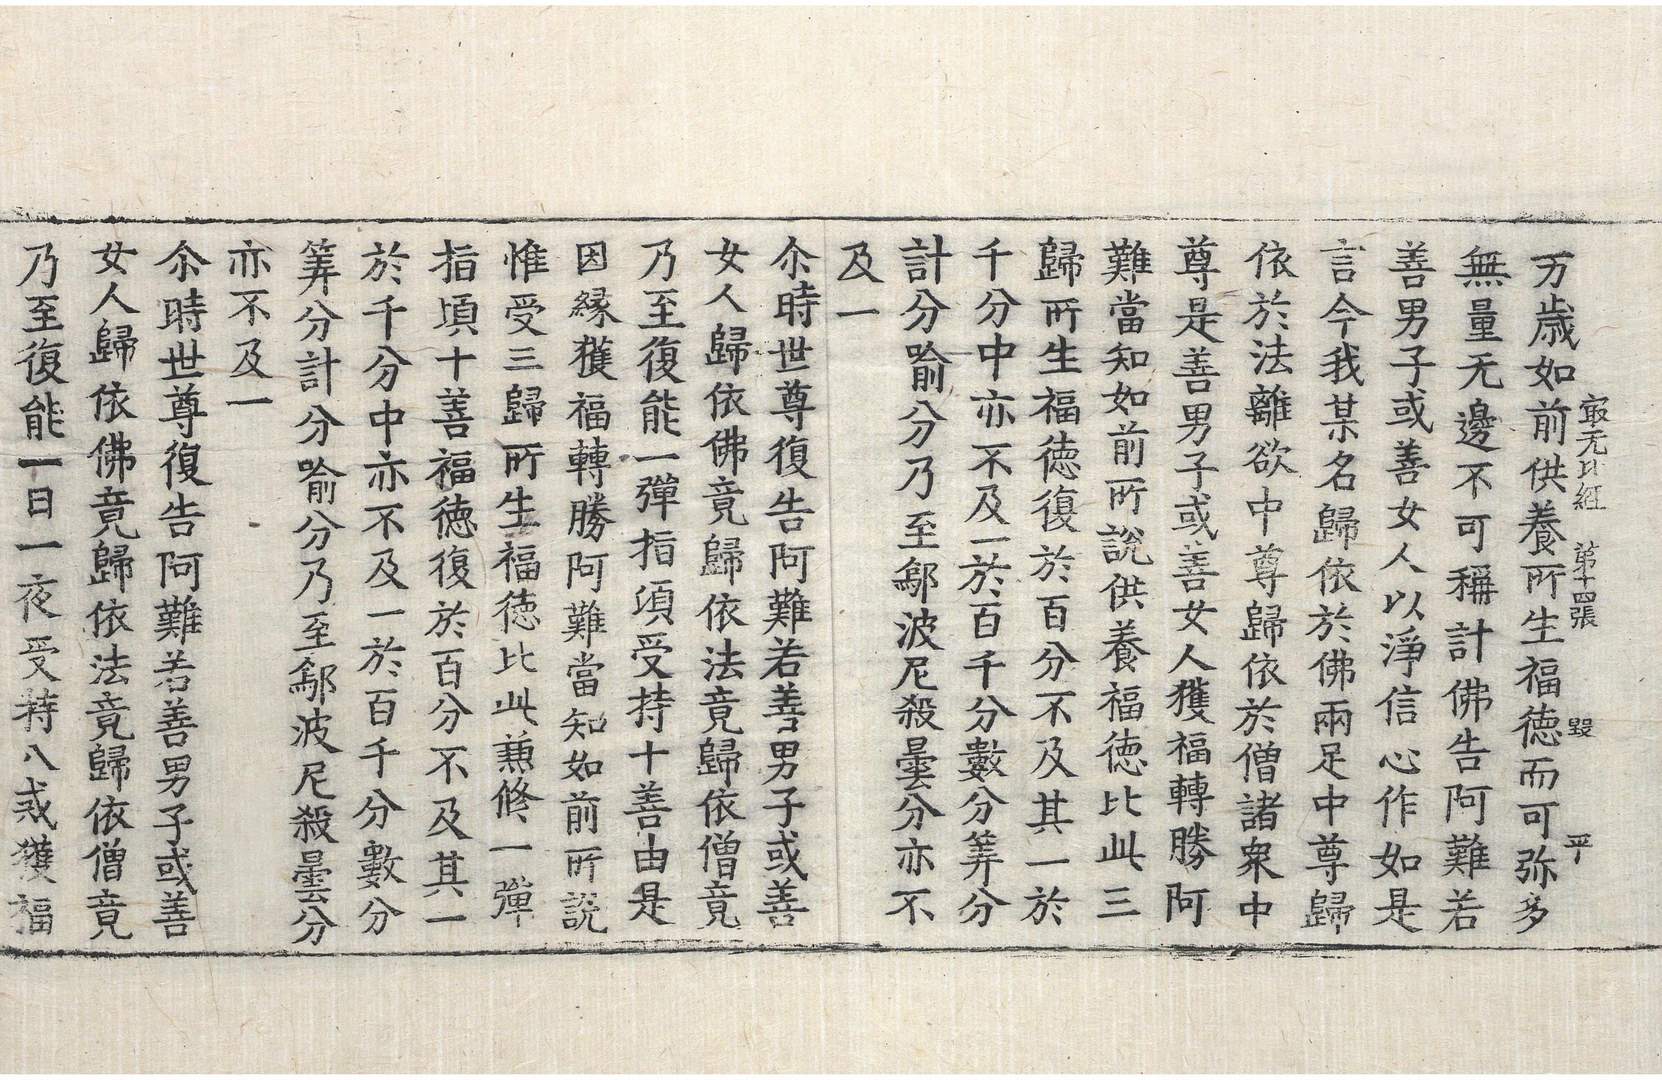 㝡无比経 第十四張 毀 平
万歳如前供養所生福徳而可弥多
無量无邊不可稱計佛告阿難若
善男子或善女人以淨信心作如是
言今我某名歸依於佛兩足中尊歸
依於法離欲中尊歸依於僧諸衆中
尊是善男子或善女人獲福轉勝阿
難當知如前所說供養福徳比此三
歸所生福徳復於百分不及其一於
千分中亦不及一於百千分數分筭分
計分喻分乃至鄔波尼殺曇分亦不
及一
尒時世尊復告阿難若善男子或善
女人歸依佛竟歸依法竟歸依僧竟
乃至復能一彈指湏受持十善由是
因縁獲福轉勝阿難當知如前所說
惟受三歸所生福徳比此兼修一彈
指頃十善福徳復於百分不及其一
於千分中亦不及一於百千分數分
筭分計分喻分乃至鄔波尼殺曇分
亦不及一
尒時世尊復告阿難若善男子或善
女人歸依佛竟歸依法竟歸依僧竟
乃至復能一日一夜受持八戒獲福